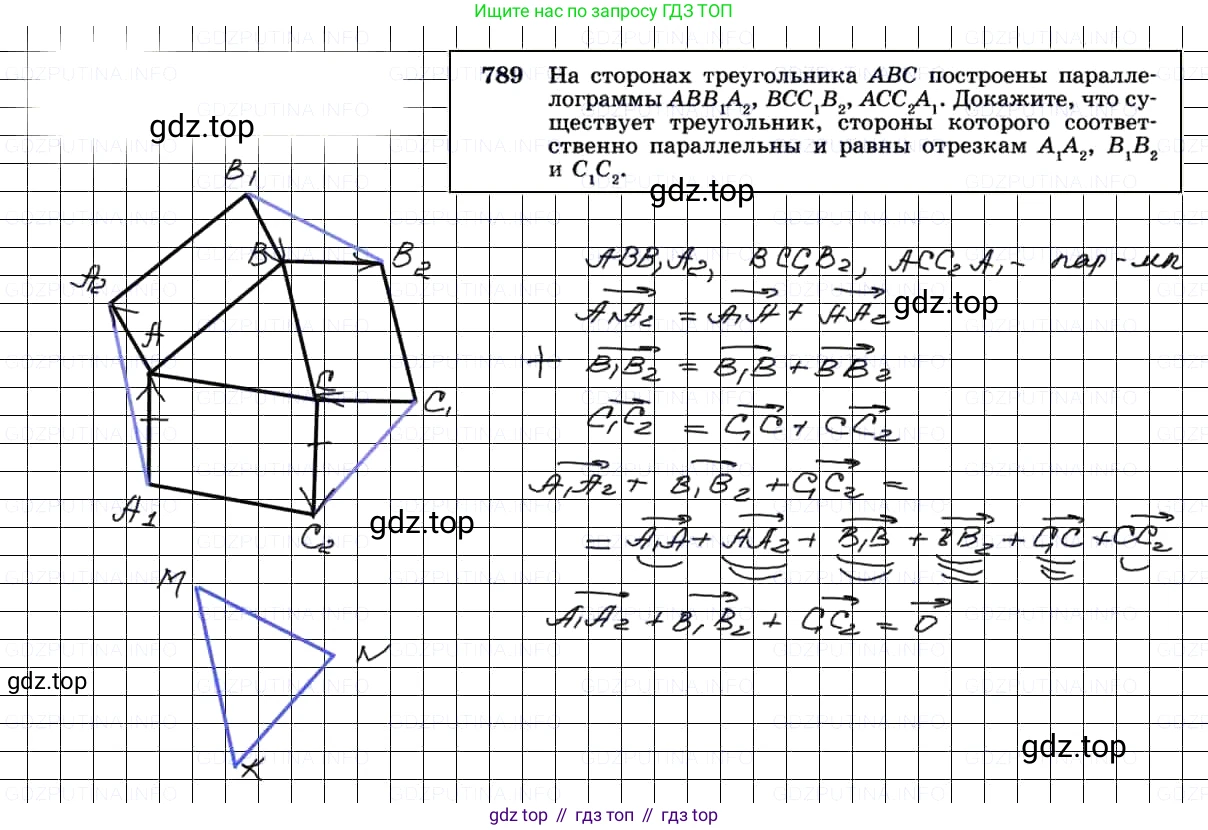 Ищите нас по запросу ГДЗ ТОП
GDZPUTINA.INFO
789 На сторонах треугольника ABC построены паралле-
лограммы ABB₁A₂, BCC₁B₂, ACC₂A₁. Докажите, что су-
ществует треугольник, стороны которого соответ-
ственно параллельны и равны отрезкам A₁A₂, B₁B₂
и C₁C₂.
gdz.top
gdz.top
B₁
B
B₂
A₂
A
C
C₁
A₁
C₂
gdz.top
M
N
K
gdz.top
ABB₁A₂, BCC₁B₂, ACC₂A₁ – пар-мм
A₁A₂ = A₁A + AA₂
gdz.top
+ B₁B₂ = B₁B + BB₂
C₁C₂ = C₁C + CC₂
A₁A₂ + B₁B₂ + C₁C₂ =
= A₁A + AA₂ + B₁B + BB₂ + C₁C + CC₂
A₁A₂ + B₁B₂ + C₁C₂ = 0
gdz.top
gdz.top // гдз топ // gdz top